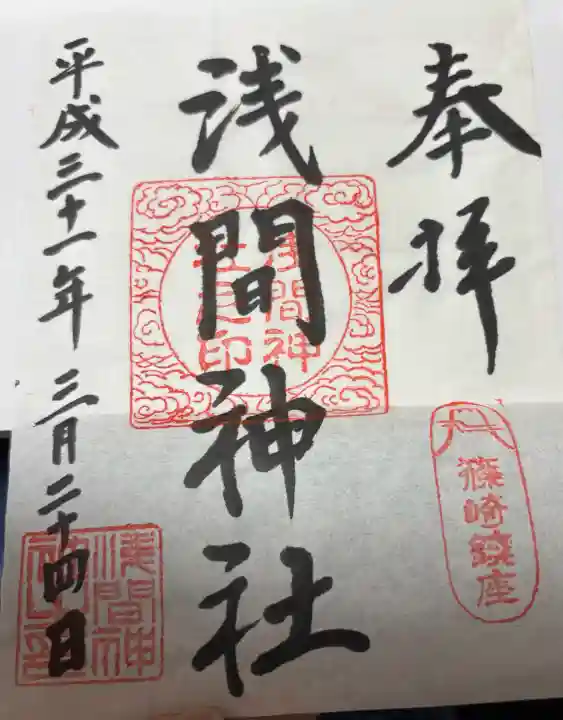 奉拝
篠崎鎮座
浅間神社
浅間神社之印
平成三十一年三月二十四日
浅間神